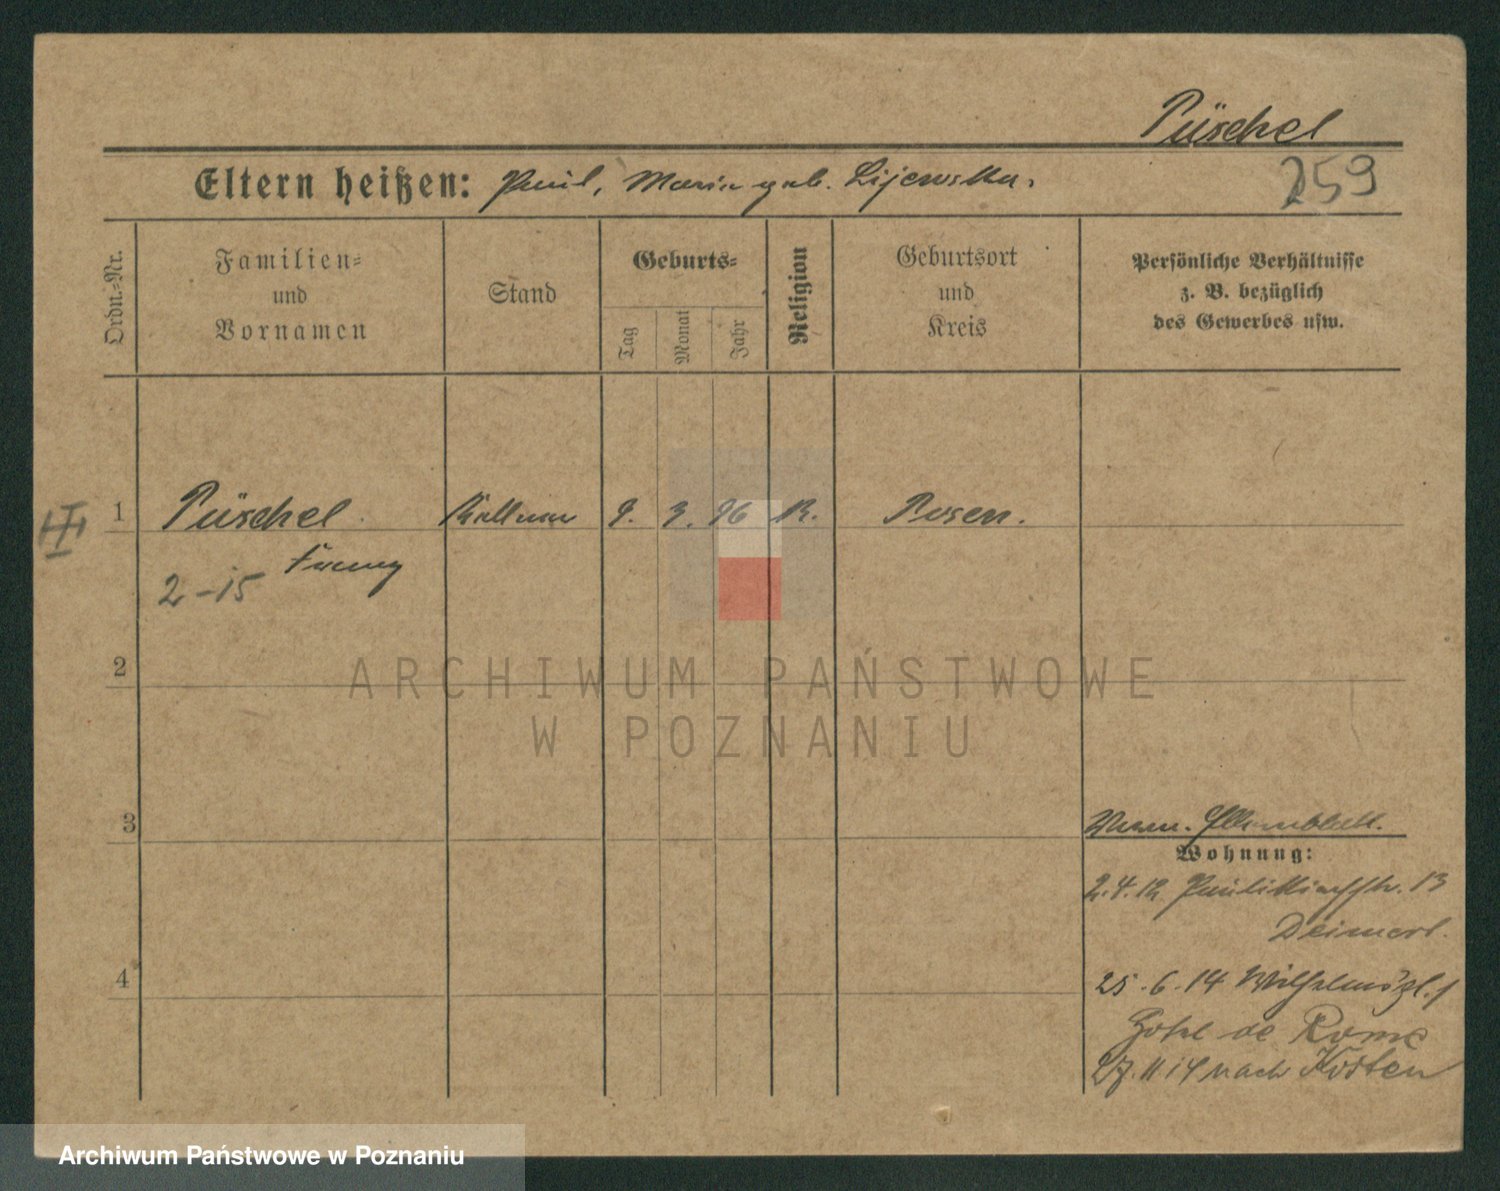 Püschel
Eltern heißen: Paul, Maria geb. Lijewska.
259
Ordn.-Nr.
Familien-
und
Vornamen
Stand
Geburts-
Tag
Monat
Jahr
Religion
Geburtsort
und
Kreis
Persönliche Verhältnisse
z. B. bezüglich
des Gewerbes usw.
III
1 Püschel Kellner 9. 3. 96 K. Posen.
2-15
2
ARCHIWUM PAŃSTWOWE
W POZNANIU
3
Wohnung:
2.4.12 Paulikirchstr. 13
4
25.6.14 Wilhelmspl. 1
Hotel de Rome
27.11.14 nach Kosten
Archiwum Państwowe w Poznaniu